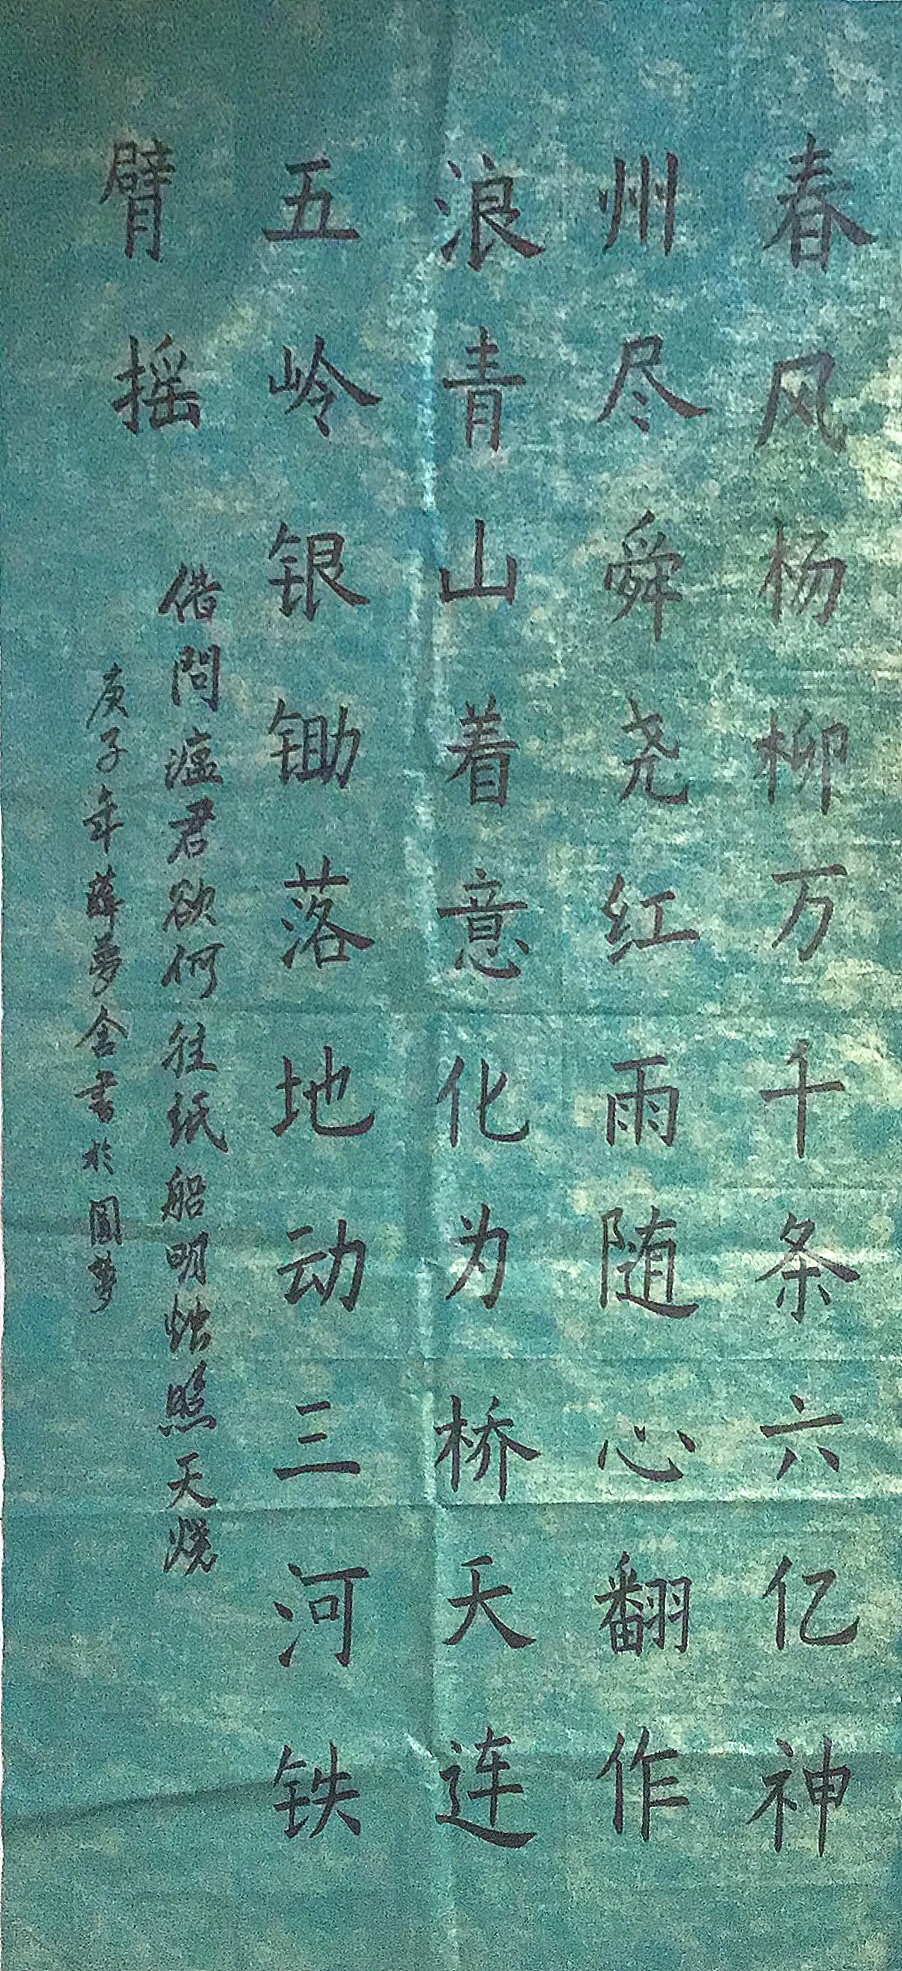 春风杨柳万千条六亿神
州尽舜尧红雨随心翻作
浪青山着意化为桥天连
五岭银锄落地动三河铁
臂摇
借問瘟君欲何往纸船明烛照天燒
庚子年薛夢舍書於圓夢